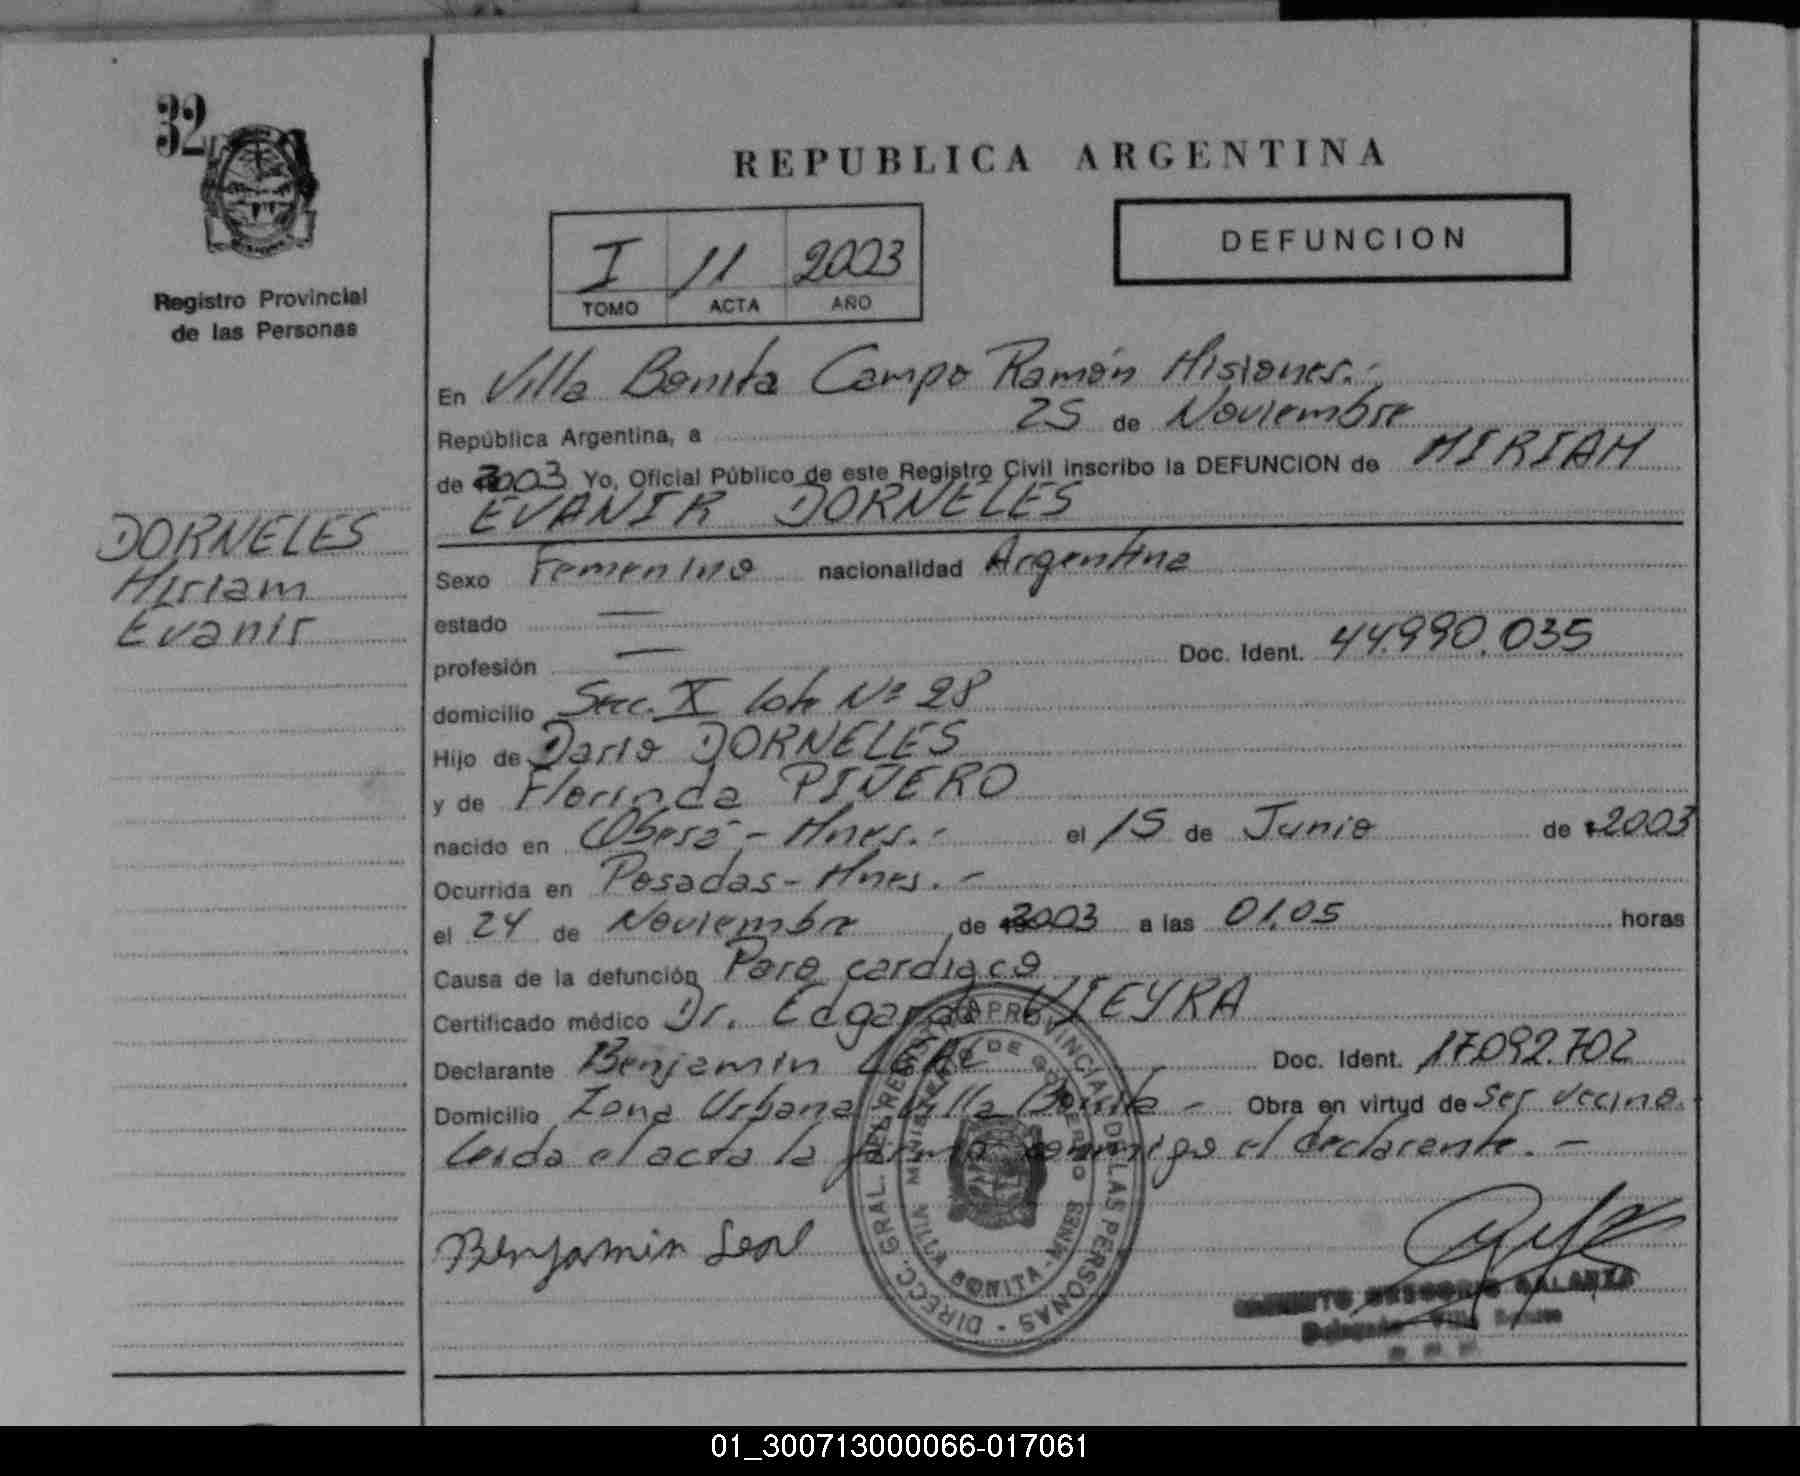 32
Registro Provincial
de las Personas
DORNELES
Miriam
Evanir
REPUBLICA ARGENTINA
I 11 2003
TOMO ACTA AÑO
DEFUNCION
En Villa Bonita Campo Ramón Misiones.-
República Argentina, a 25 de Noviembre
de 2003 Yo, Oficial Público de este Registro Civil inscribo la DEFUNCION de MIRIAM
EVANIR DORNELES
Sexo Femenino nacionalidad Argentina
estado —
profesión — Doc. Ident. 44.990.035
domicilio Secc. X lote Nº 28
Hijo de Dario DORNELES
y de Florinda PIÑERO
nacido en Oberá - Mnes.- el 15 de Junio de 2003
Ocurrida en Posadas - Mnes. -
el 24 de Noviembre de 2003 a las 01,05 horas
Causa de la defunción Paro cardiaco
Certificado médico Dr. Edgardo VIEYRA
Declarante Benjamin LEAL Doc. Ident. 17.092.702
Domicilio Zona Urbana Villa Bonita - Obra en virtud de ser vecino.
Leida el acta la firma conmigo el declarente. -
Benjamin Leal
DIRECC. GRAL. DEL REGISTRO PROVINCIAL DE LAS PERSONAS -
MINISTERIO DE GOBIERNO
VILLA BONITA - MNES
GREGORIO GALARZA
Delegado Villa Bonita
01_300713000066-017061